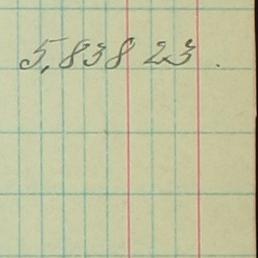 5,838 23